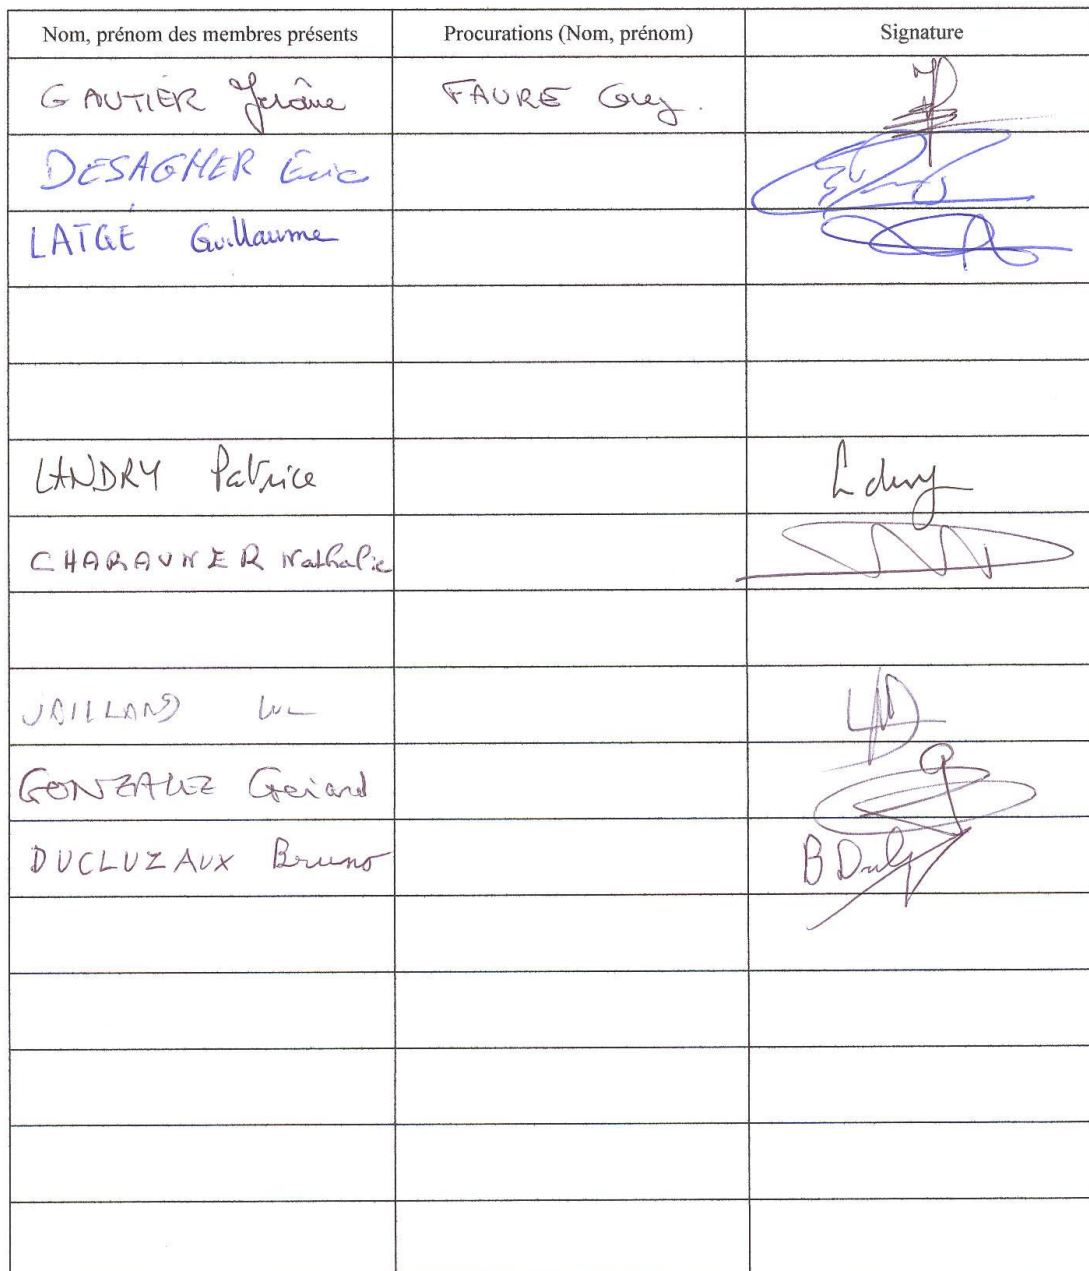 Nom, prénom des membres présents Procurations (Nom, prénom) Signature
GAUTIER Jérôme FAURE Guy.
DESAGHER Eric
LATGÉ Guillaume
LANDRY Patrice
CHARAUNER Nathalie
VAILLAND Luc
GONZALEZ Gérard
DUCLUZAUX Bruno